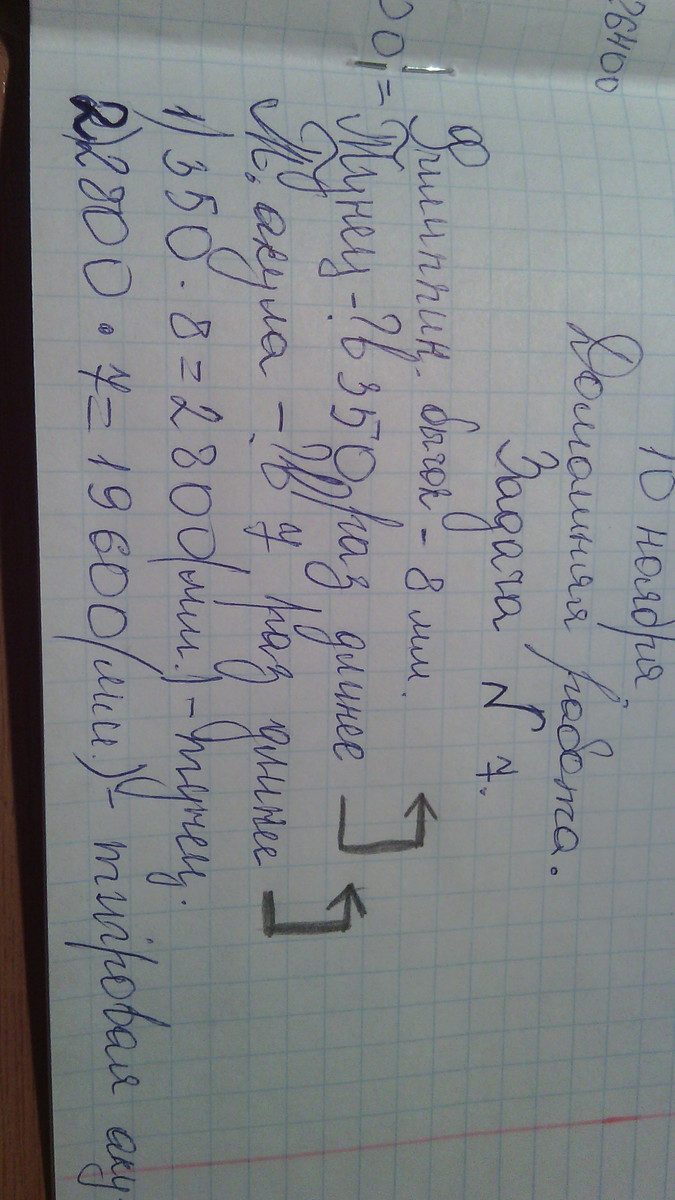 26400
00 =
10 ноября
Домашняя работа.
Задача № 7.
Филиппин. бычок - 8 мм.
Тунец - ? в 350 раз длинее
Т. акула - ? в 7 раз длинее
1) 350 · 8 = 2800 (мм.) - тунец.
2) 2800 · 7 = 19600 (мм.) - тигровая аку